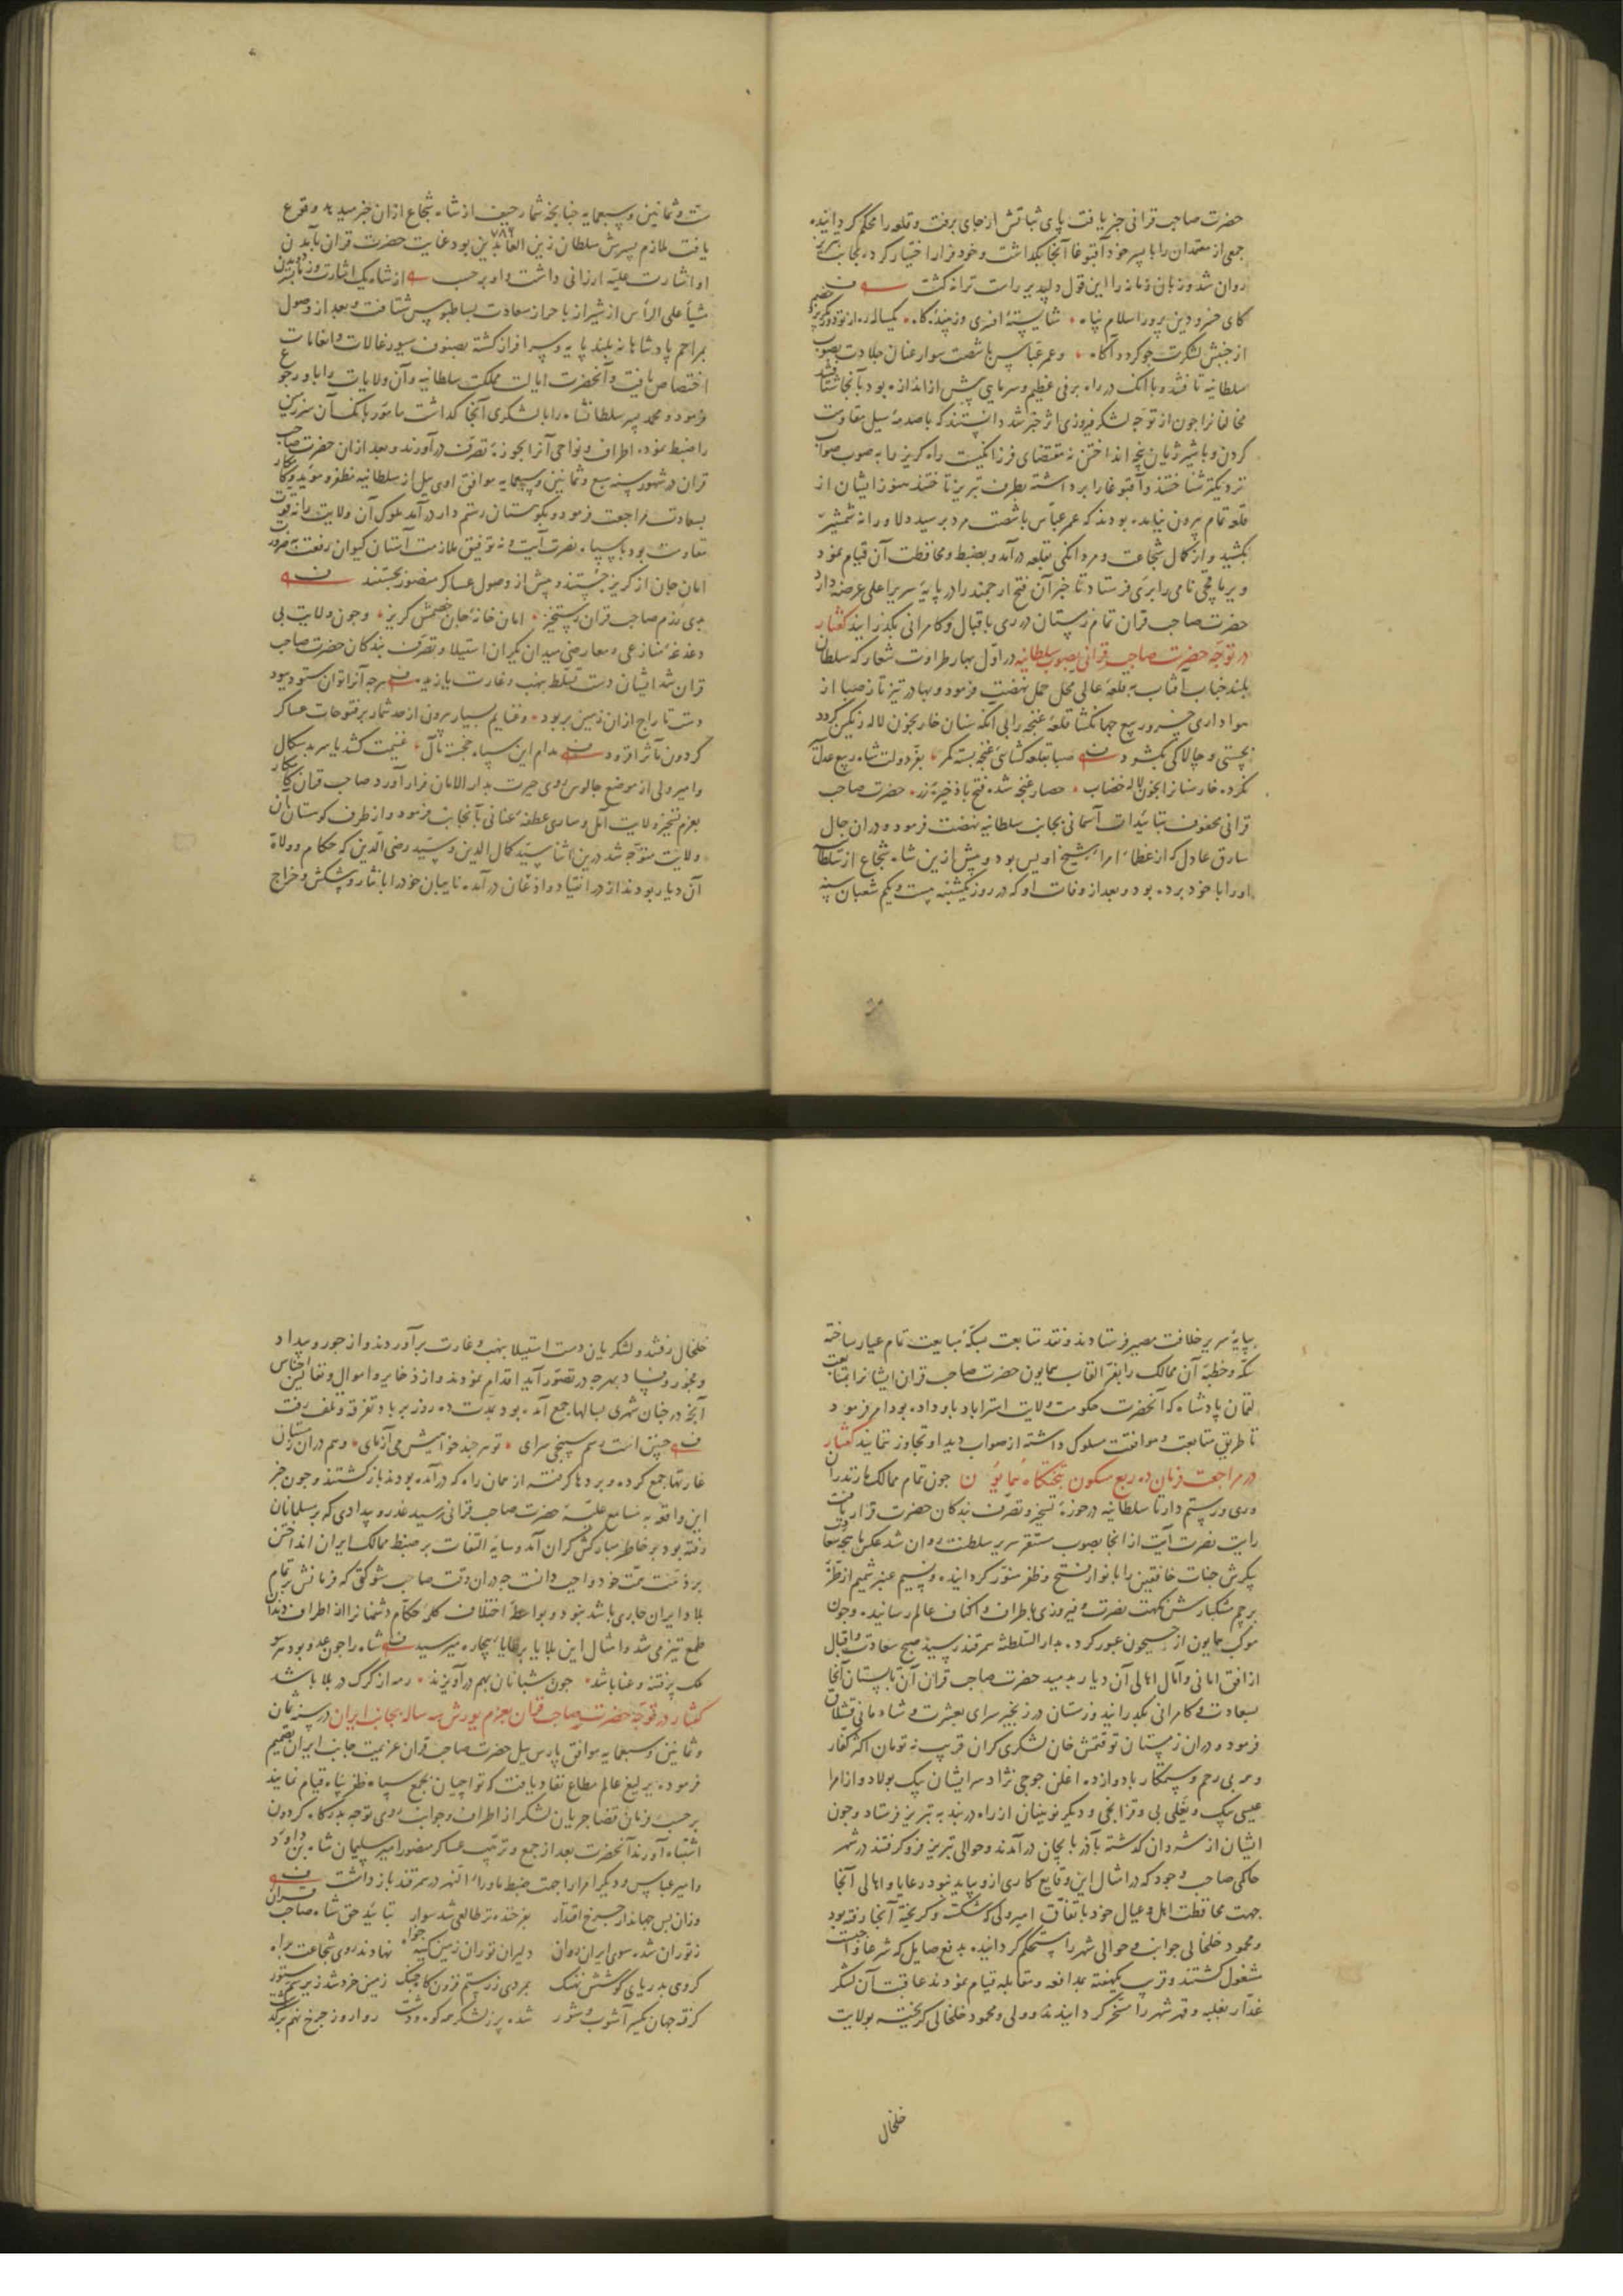 حضرت صاحب قرانی خبر یافت پای ثباتش از جای برفت و قلعه را محکم کردانیده
جمعی از معتمدان را با پسر خود آقتوغا آنجا بکذاشت و خود فرار اختیار کرد و بجانب تبریز
روان شد و زبان زمانه را این قول دلپذیر راست ترانه کشت
کای خسرو دین پرور اسلام پناه شایستهٔ افسری و زیبندهٔ کاه یکساله ره از تو دور
از جنبش لشکرت جو کردد آکاه و عمر عباس با شصت سوار عنان جلادت بصوب
سلطانیه تافتند و با آنک در راه برفی عظیم و سرمایی پیش از اندازه بود بآنجا شتافتند
مخالفانرا جون از توجه لشکر فیروزی اثر خبر شد دانستند که با صدمهٔ سیل مقاومت
کردن و با شیر ژیان پنجه انداختن نه مقتضای فرزانکیست راه کریز را به صوب صواب
نزدیکتر شناختند و آقتوغا را برداشته بطرف تبریز تاختند هنوز ایشان از
قلعه تمام بیرون نیامده بودند که عمر عباس با شصت مرد برسید دلاورانه شمشیر
بکشید و از کمال شجاعت و مردانکی بقلعه درآمد و بضبط و محافظت آن قیام نمود
و یرماقچی نامی را بری فرستاد تا خبر آن فتح ارجمند را در پایهٔ سریر اعلی عرضه دارد
حضرت صاحب قران تمام زمستان در ری باقبال و کامرانی بکذرانید کفتار
در توجه حضرت صاحب قرانی بصوب سلطانیه در اول بهار طراوت شعار که سلطان
بلند جناب آفتاب بر قلعهٔ عالی محل حمل نهضت فرمود و بهادر تیزتاز صبا از
هواداری خسرو ربیع جهانکشا قلعهٔ غنجه را بی آنکه سنان خار بخون لاله رنکین کردد
بچستی و چالاکی بکشود صبا بقلعه کشایی غنجه بسته کمر بفر دولت شاه ربیع عدل
نکرده خار سنانرا بخون لاله خضاب حصار غنجه شده فتح با ذخیرهٔ زر حضرت صاحب
قرانی محفوف بتأییدات آسمانی بجانب سلطانیه نهضت فرمود و دران حال
سارق عادل که از عظماء امراء شیخ اویس بود و پیش ازین شاه شجاع از سلطانیه
او را با خود برده بود و بعد از وفات او که در روز یکشنبه بیست و یکم شعبان سنه
ست و ثمانین و سبعمایه جنانجه شمار حیف از شاه شجاع ازان خبر میدهد وقوع
۷۸۶
یافت ملازم پسرش سلطان زین العابدین بود عنایت حضرت قران بآمدن
او اشارت علیه ارزانی داشت و او بر حسب از شاه یک اشارت وز بنده بسر دویدن
مشیاً علی الرأس از شیراز باحراز سعادت بساط بوس شتافت و بعد از وصول
بمراحم پادشاهانه بلند پایه و سرافراز کشته بصنوف سیورغالات و انعامات
اختصاص یافت و آنحضرت ایالت مملکت سلطانیه و آن ولایات را باو رجوع
فرمود و محمد پسر سلطانشاه را با لشکری آنجا کذاشت مامور بآنک آن سرزمین
را ضبط نموده اطراف و نواحی آنرا بحوزهٔ تصرف درآورند و بعد ازان حضرت صاحب
قران در شهور سنه سبع و ثمانین و سبعمایه موافق اودی ییل از سلطانیه مظفر و مؤید و کامکار
بسعادت مراجعت فرمود و بکوهستان رستم دار درآمد ملوک آن ولایت را نه قوت
مقاومت بود با سپاه نصرت آیت و نه توفیق ملازمت آستان کیوان رفعت بضرورت
امان جان از کریز جستند و پیش از وصول عساکر منصور بجستند
بدی رزم صاحب قران رستخیز امان خانهٔ جان خصمش کریز و جون ولایت بی
دغدغهٔ منازعی و معارضی میدان یکران استیلا و تصرف بندکان حضرت صاحب
قران شد ایشان دست تسلط بنهب و غارت یازیده هر جه آنرا توان ستود و ببود
دست تاراج ازان زمین بربود و غنایم بسیار بیرون از حد شمار بر فتوحات عساکر
کردون مآثر افزود مدام این سپاه خجسته مآل غنیمت کشد یا سر بدسکال
و امیر ولی از موضع جالوس روی حیرت بدارالامان فرار آورد صاحب قران کامکار
بعزم تسخیر ولایت آمل و ساری عطفهٔ عنانی بآنجانب فرمود و از طرف کوهستان بآن
ولایت متوجه شد درین اثنا سید کمال الدین و سید رضی الدین که حکام و ولاة
آن دیار بودند از در انقیاد و اذعان درآمده نایبان خود را با نثار و پیشکش و خراج
بپایهٔ سریر خلافت مصیر فرستادند و نقد متابعت بسکهٔ مبایعت تمام عیار ساخته
سکه و خطبهٔ آن ممالک را بفر القاب همایون حضرت صاحب قران ایشانرا بمتابعت
لقمان پادشاه که آنحضرت حکومت ولایت استراباد باو داده بود امر فرمود
تا طریق متابعت و موافقت مسلوک داشته از صواب دید او تجاوز ننمایند کفتار
در مراجعت فرمان ده ربع مسکون بتختکاه همایون جون تمام ممالک مازندران
و ری و رستم دار تا سلطانیه در حوزهٔ تسخیر و تصرف بندکان حضرت قرار یافت
رایت نصرت آیت از آنجا بصوب مستقر سریر سلطنت روان شد عکس ماهچه سعادت
پیکرش جنات خافقین را بانوار فتح و ظفر منور کردانیده و نسیم عنبر شمیم از طرهٔ
پرچم مشکبارش نکهت نصرت و فیروزی باطراف و اکناف عالم رسانید و جون
موکب همایون از جیحون عبور کرده بدار السلطنهٔ سمرقند رسید صبح سعادت و اقبال
از افق امانی و آمال اهالی آن دیار بدمید حضرت صاحب قران آن تابستان آنجا
بسعادت و کامرانی بکذرانید و زمستان در زنجیر سرای بعشرت و شادمانی قشلاق
فرمود و دران زمستان توقتمش خان لشکری کران قریب نه تومان اکثر کفار
و همه بی رحم و ستمکار با دوازده اغلن جوجی نژاد سر ایشان بیک بولاد و از امرا
عیسی بیک و یغلی بی و قزانجی و دیکر نوینان از راه دربند به تبریز فرستاد و جون
ایشان از شروان کذشته بآذربایجان درآمدند و حوالی تبریز فرو کرفتند در شهر
حاکمی صاحب وجود که در امثال این وقایع کاری ازو بیاید نبود رعایا و اهالی آنجا
جهت محافظت اهل و عیال خود باتفاق امیر ولی که شکسته و کریخته آنجا رفته بود
و محمود خلخالی جوانب و حوالی شهر را مستحکم کردانیده بدفع صایل که شرعا واجبست
مشغول کشتند و قریب یکهفته بمدافعه و مقابله قیام نمودند عاقبت آن لشکر
غدار بغلبه و قهر شهر را مسخر کردانیدند و ولی و محمود خلخالی کریخته بولایت
خلخال
خلخال رفتند و لشکریان دست استیلا بنهب و غارت برآوردند و از جور و بیداد
و فجور و فساد بهر جه در تصور آید اقدام نمودند و از ذخایر و اموال و نفایس اجناس
آنجه در جنان شهری بسالها جمع آمده بود بمدت ده روز بر باد تفرقه و تلف رفت
جنین است رسم سپنجی سرای تو هر جند خواهیش می آزمای و هم دران زمستان
غارتها جمع کرده و بردها کرفته از همان راه که درآمده بودند بازکشتند و جون خبر
این واقعه به مسامع علیهٔ حضرت صاحب قرانی رسید غدر و بیدادی که بر مسلمانان
رفته بود بر خاطر مبارکش کران آمد و سایهٔ التفات بر ضبط ممالک ایران انداختن
بر ذمت همت خود واجب دانست جه دران وقت صاحب شوکتی که فرمانش بر تمام
بلاد ایران جاری باشد نبود و بواسطهٔ اختلاف کلمهٔ حکام دشمنانرا از اطراف دندان
طمع تیز می شد و امثال این بلایا برعایاء بیچاره میرسید شاه را جون عدو بود هر سو
ملک پر فتنه و عنا باشد جون شبانان بهم درآویزند رمه از کرک در بلا باشد
کفتار در توجه حضرت صاحب قران بعزم یورش سه ساله بجانب ایران در سنه ثمان
و ثمانین و سبعمایه موافق پارس ییل حضرت صاحب قران عزیمت جانب ایران تصمیم
فرموده یرلیغ عالم مطاع نفاذ یافت که تواجیان بجمع سپاه ظفر پناه قیام نمایند
بر حسب فرمان قضا جریان لشکر از اطراف و جوانب روی توجه بدرکاه کردون
اشتباه آوردند آنحضرت بعد از جمع و ترتیب عساکر منصور امیر سلیمان شاه بن داود
و امیر عباس و دیکر امرا را جهت ضبط ماوراء النهر در سمرقند بازداشت
وزان پس جهاندار جرخ اقتدار بفرخنده تر طالعی شد سوار بتأیید حق شاه صاحب قران
ز توران شده سوی ایران روان دلیران توران زمین کینه خواه نهادند روی شجاعت براه
کروهی بدریای کوشش نهنک بمردی ز رستم فزون کاه جنک زمین خرد شد زیر سم ستور
کرفته جهان یکسر آشوب و شور شده پر ز لشکر همه کوه و دشت روارو ز جرخ نهم برکذشت